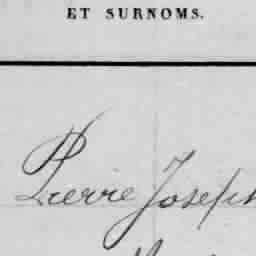 ET SURNOMS.
Pierre Joseph